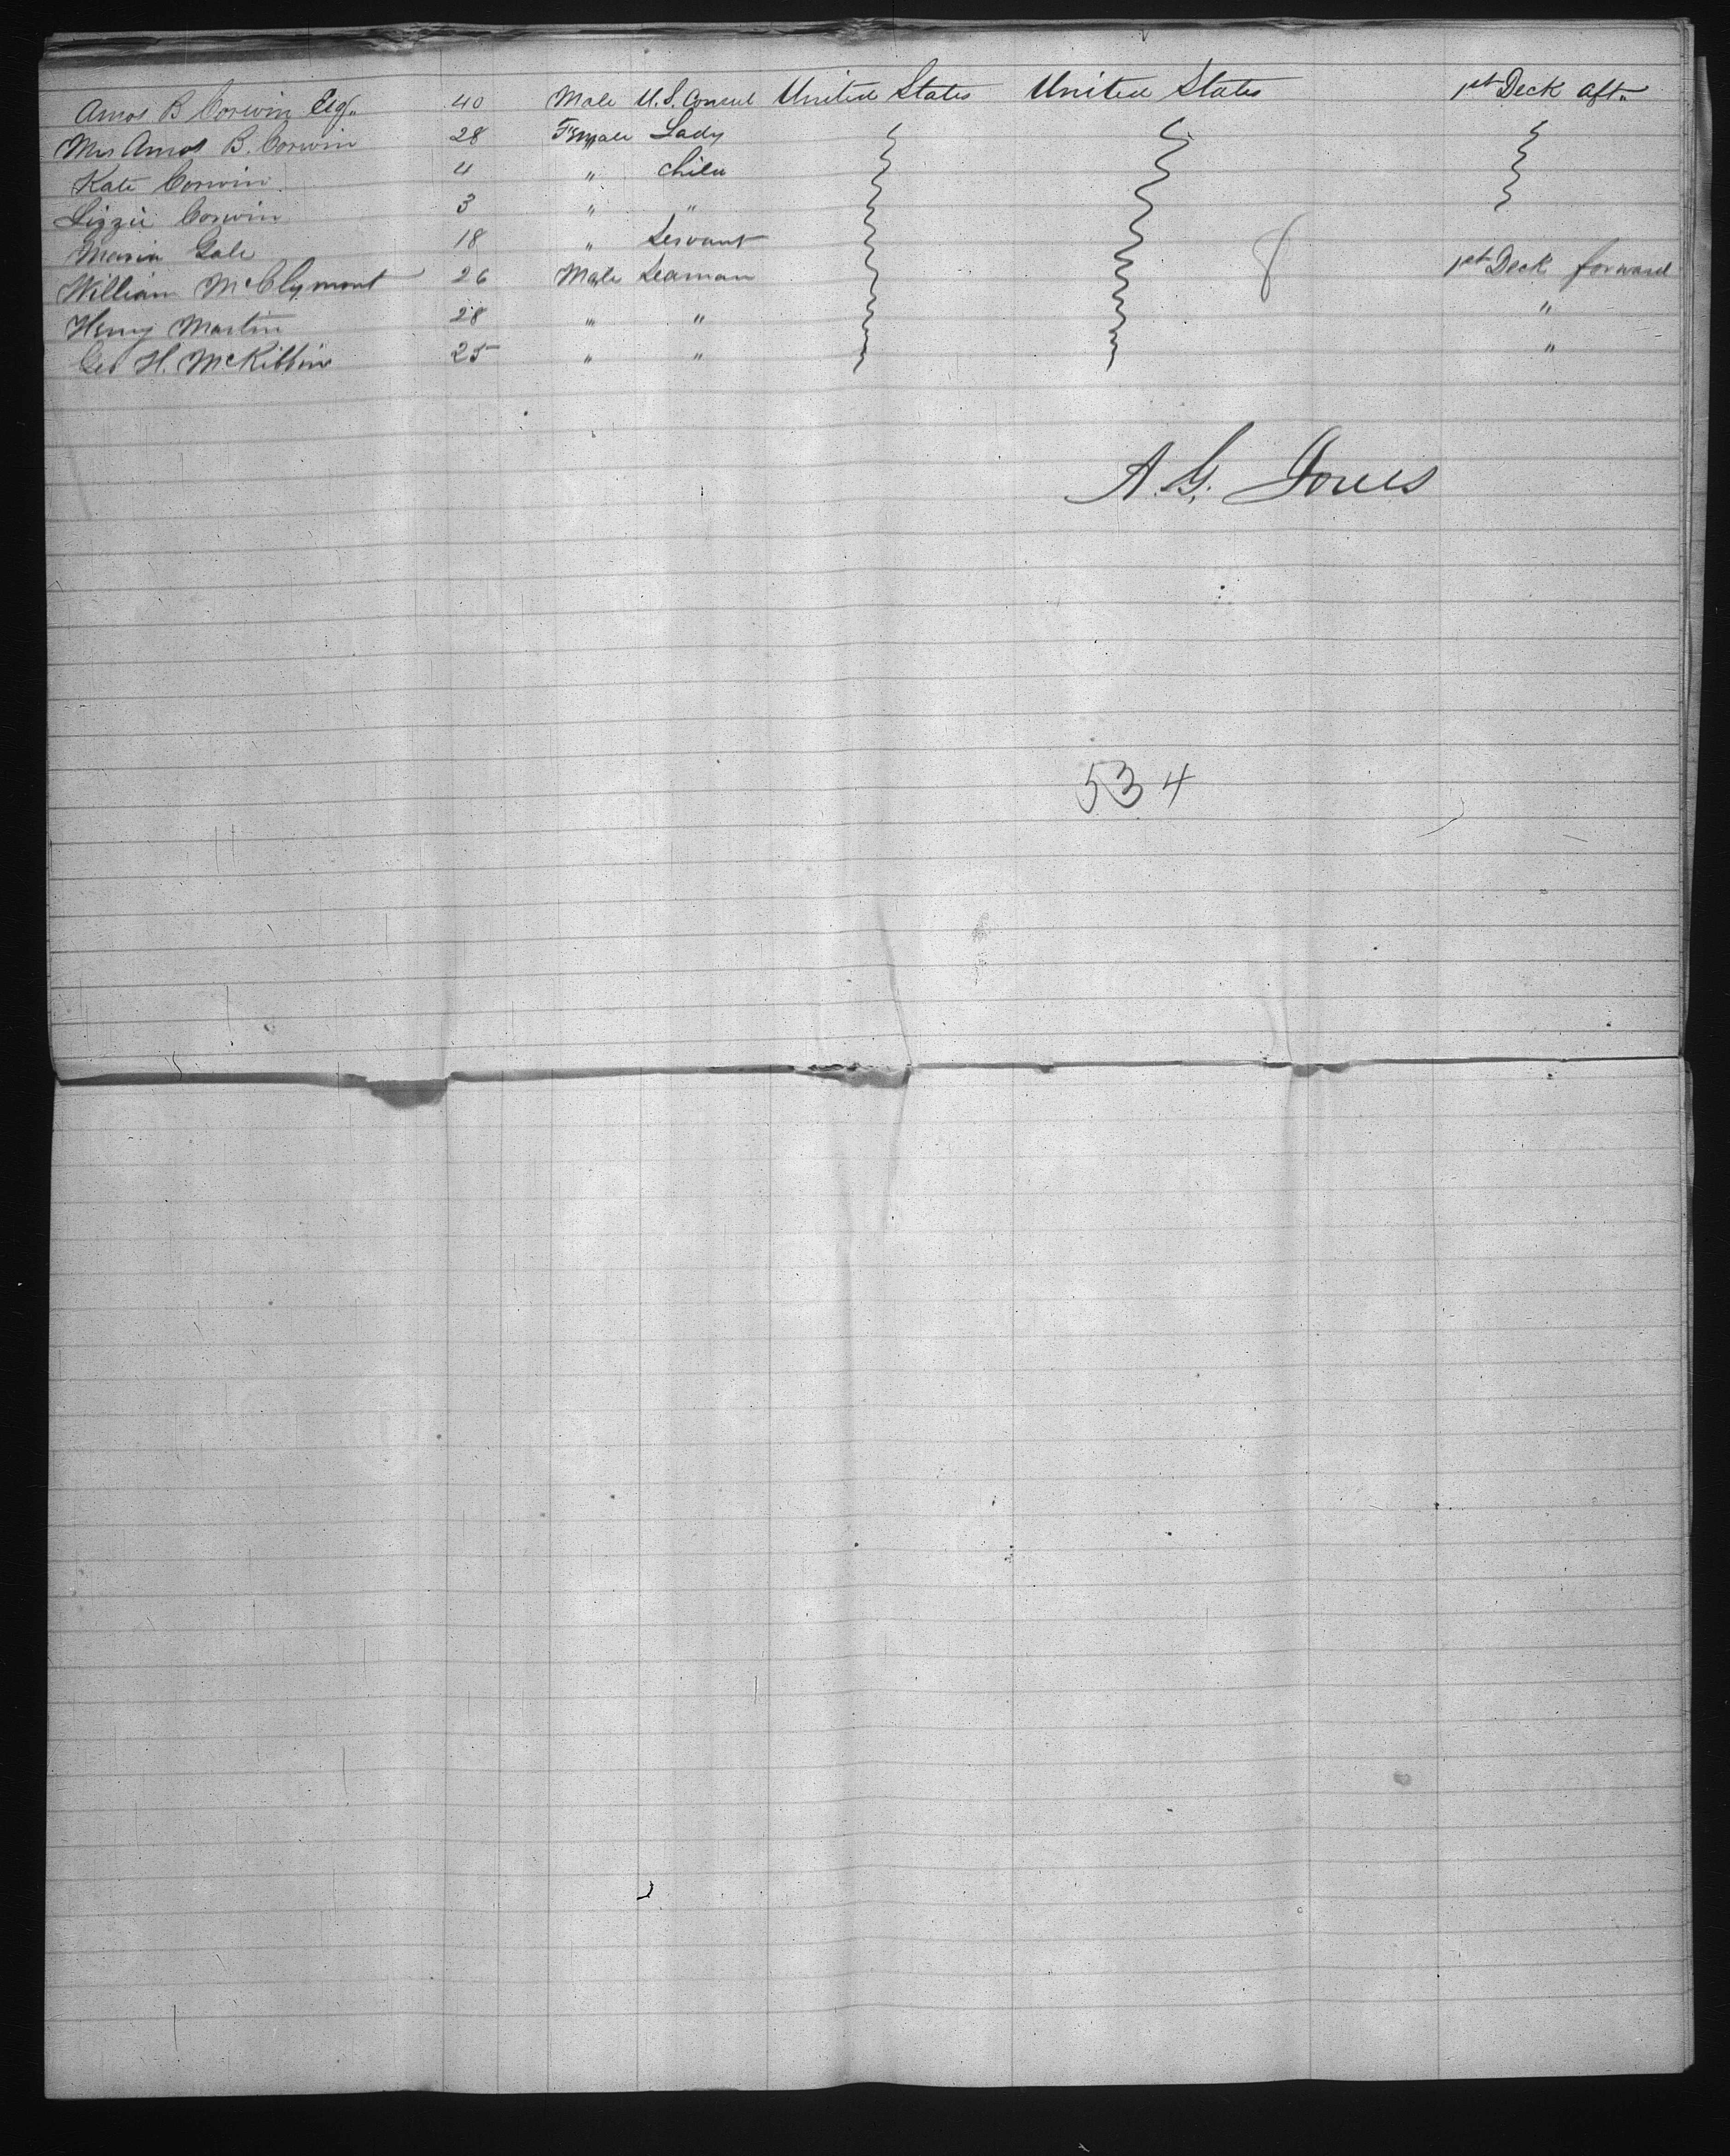 Amos B Corwin Esq. 40 Male U.S. Consul United States United States 1st Deck aft.
Mrs Amos B. Corwin 28 Female Lady
Kate Corwin 4 " Child
Lizzie Corwin 3 " "
Maria Gale 18 " Servant
William McClymont 26 Male Seaman 8 1st Deck forward
Henry Martin 28 " " "
Geo H. McKibbin 25 " " "
A. G. Jones
534